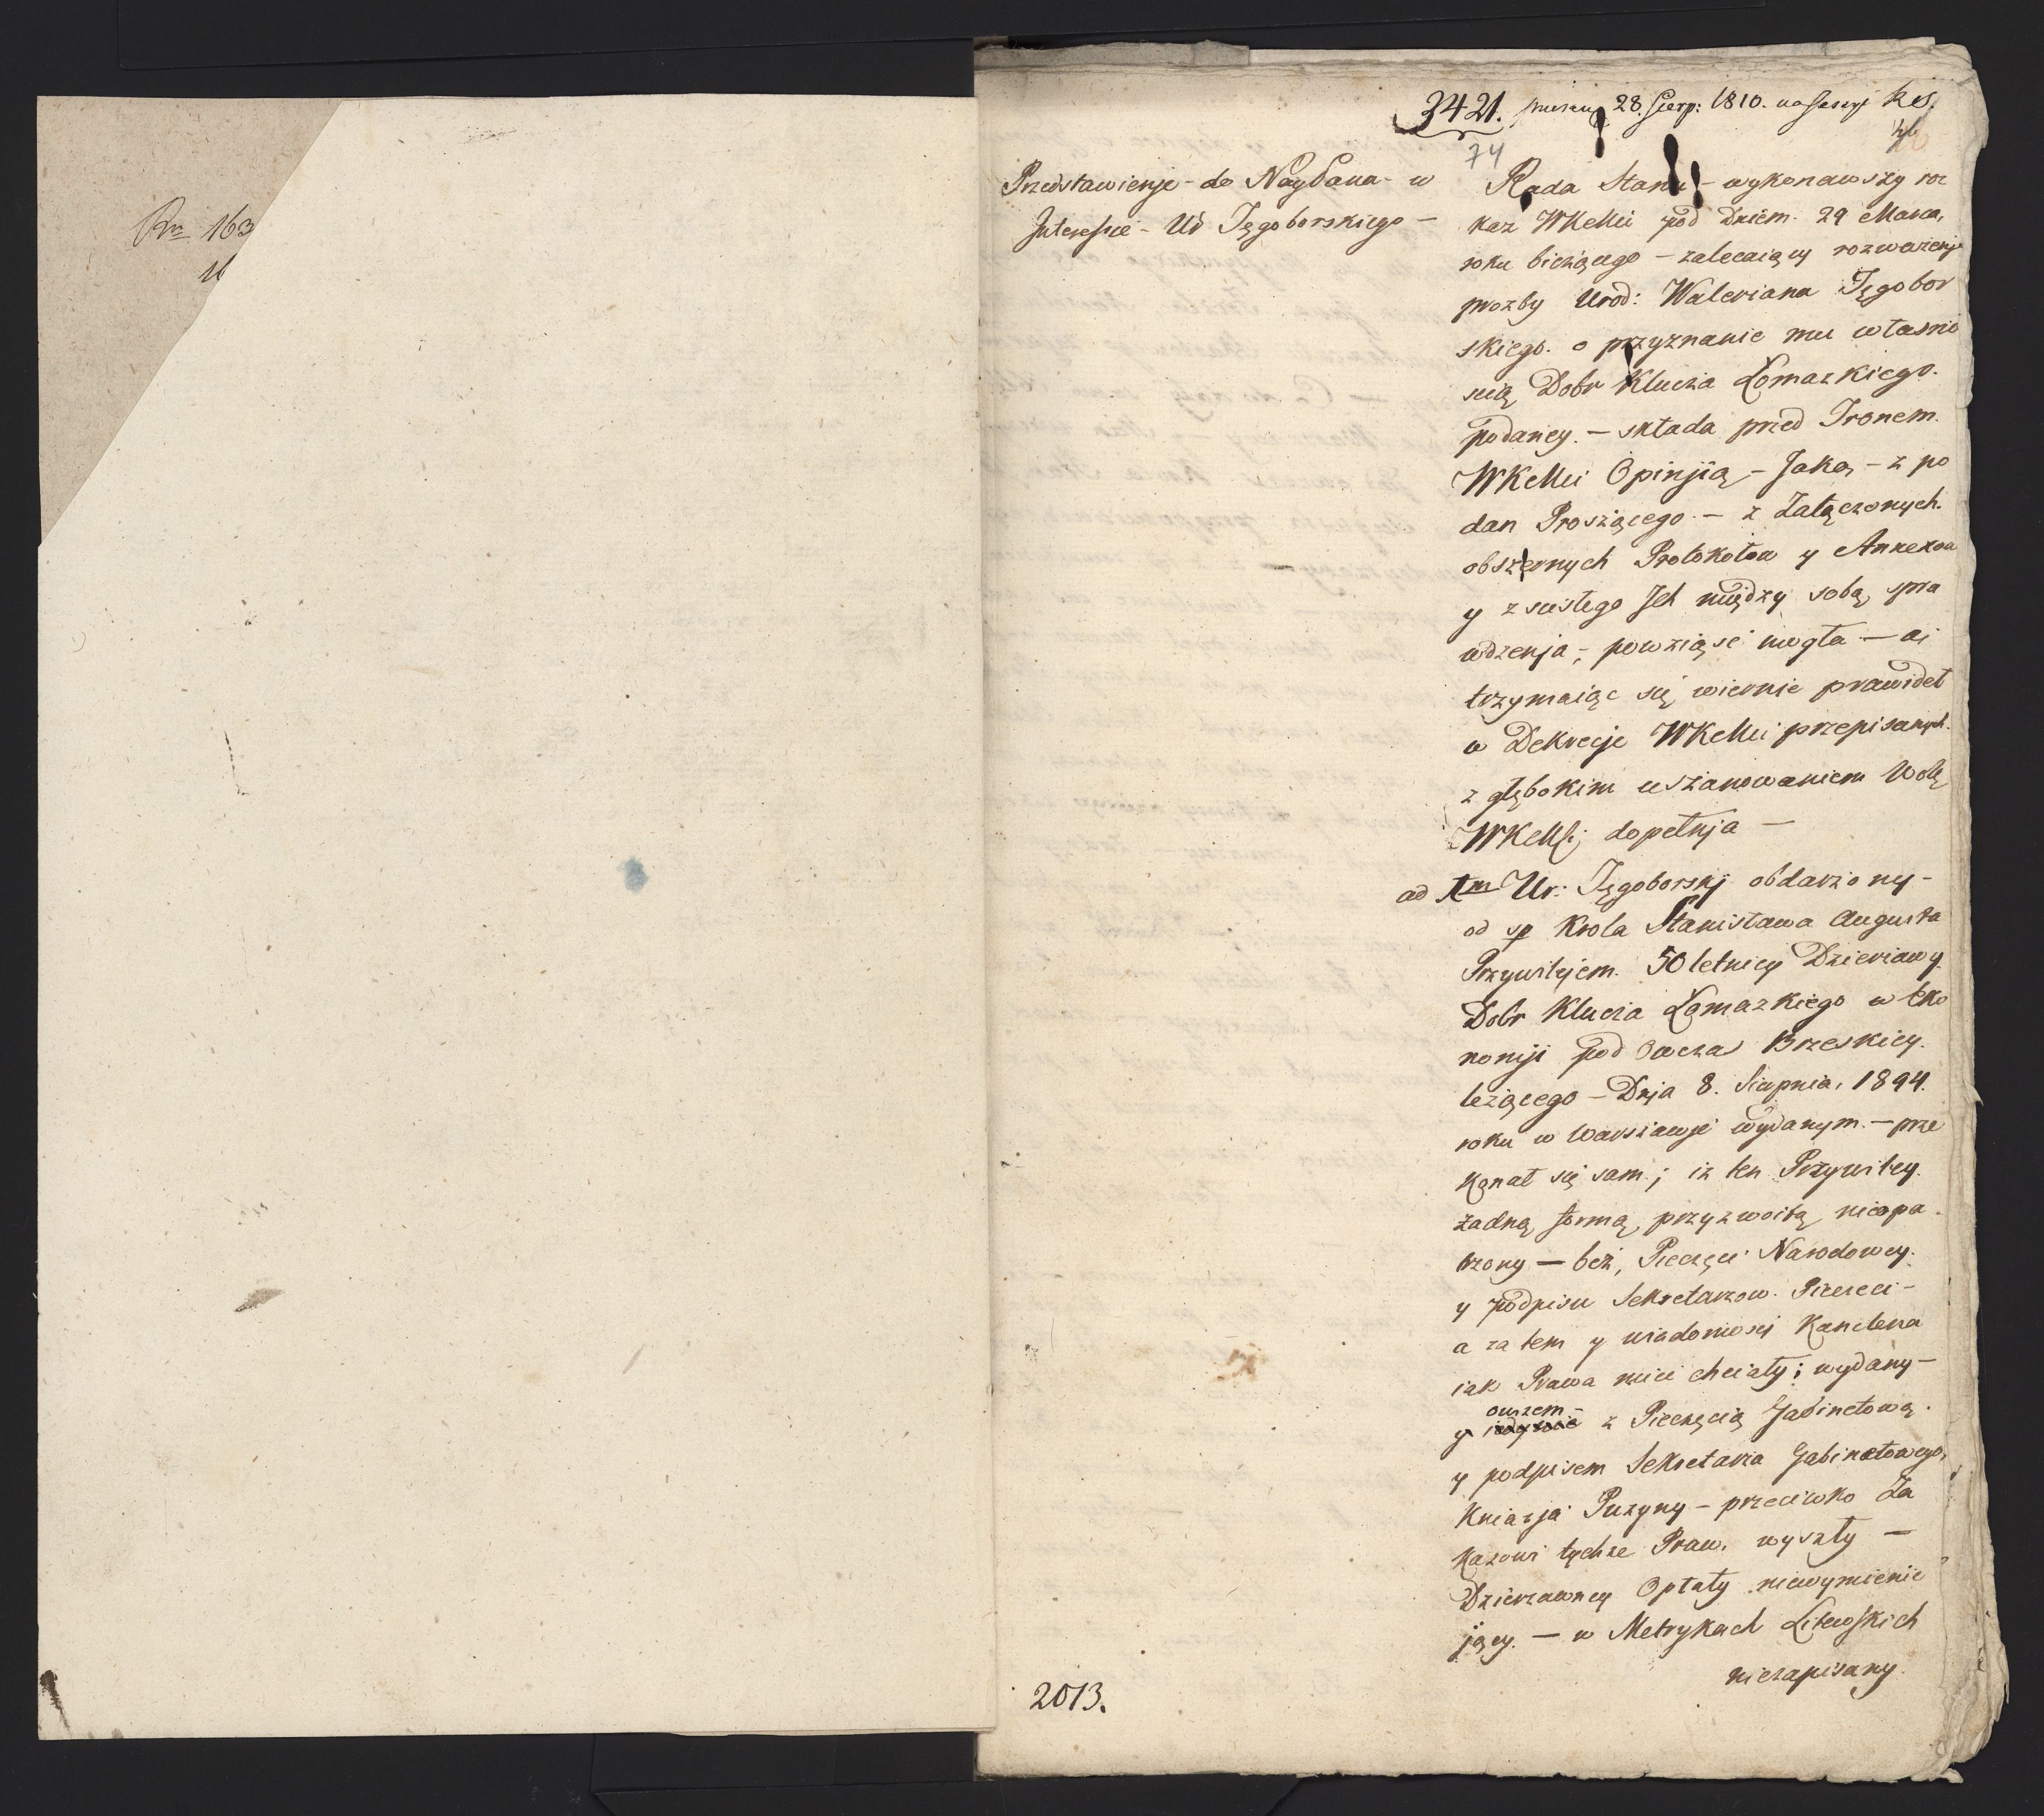 Rn 163
16
3421. 28. Sierp: 1810. na Sessyi
74
Przedstawienje - do Nayjana - w
Interessie - Ur Tęgoborskiego -
Rada Stanu - wykonawszy roz
kaz WKeMci pod Dniem 29 Marca,
roku bieżącego - zalecaiący rozważenje
prozby Urod: Waleriana Tęgobor
skiego. o przyznanie mu własno
scią Dobr Klucza Łomazkiego.
podaney. - składa przed Tronem.
WKeMci Opinjią - Jaką - z po
dan Proszącego. - z Załączonych.
obszernych Protokołow y Annexow
y z scisłego Ich między sobą spra
wdzenja; powziąsć mogła - ai
trzymaiąc się wiernie prawideł
w Dekrecje WKeMci przepisanych.
z głębokim uszanowaniem Wolę
WKeMści dopełnja -
ad 1m Ur: Tęgoborskj obdarzony -
od sp Krola Stanisława Augusta
Przywilejem. 50 letniey Dzierżawy.
Dobr Klucza Łomazkiego w Eko
nomji pod owczas Brzeskiey.
leżącego - Dnja 8. Sierpnia. 1894.
roku w Warszawje wydanym. - prze
konał się sam; iż ten Przywiley.
żadną formą przyzwoitą nieopa.
trzony - bez, Pieczęci Narodowey.
y podpisu Sekretarzow. Pieczeci -
a za tem y wiadomosci Kanclerza
iak Prawa miec chciały; wydany -
owszem -
y z Pieczęcią Gabinetową.
y podpisem Sekretarza Gabinetowego,
Kniazja Puzyny - przeciwko Za
kazowi tychże Praw. wyszły -
Dzierzawney Opłaty niewymienie
jący. - w Metrykach Litewskich
niezapisany.
2013.